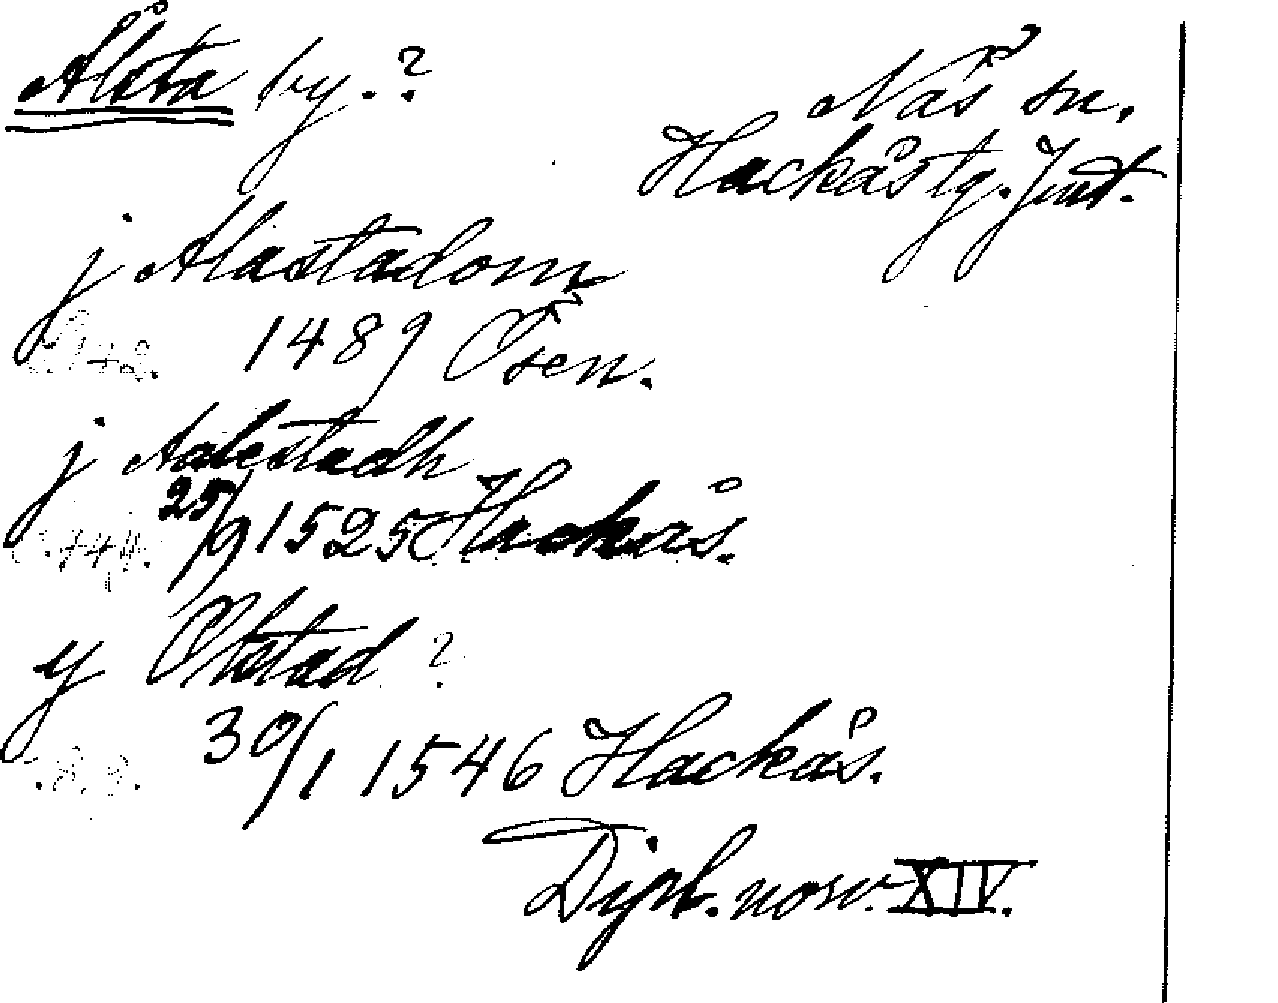 Ålsta by.?
Näs sn.
Hackås tg. Jmt.
j Alastadom
s. 142. 1489 Ösen.
j Aalestadh
s. 144. 25/9 1525 Hackås.
y Olstad ?
30/1 1546 Hackås.
Dipl. norv. XIV.